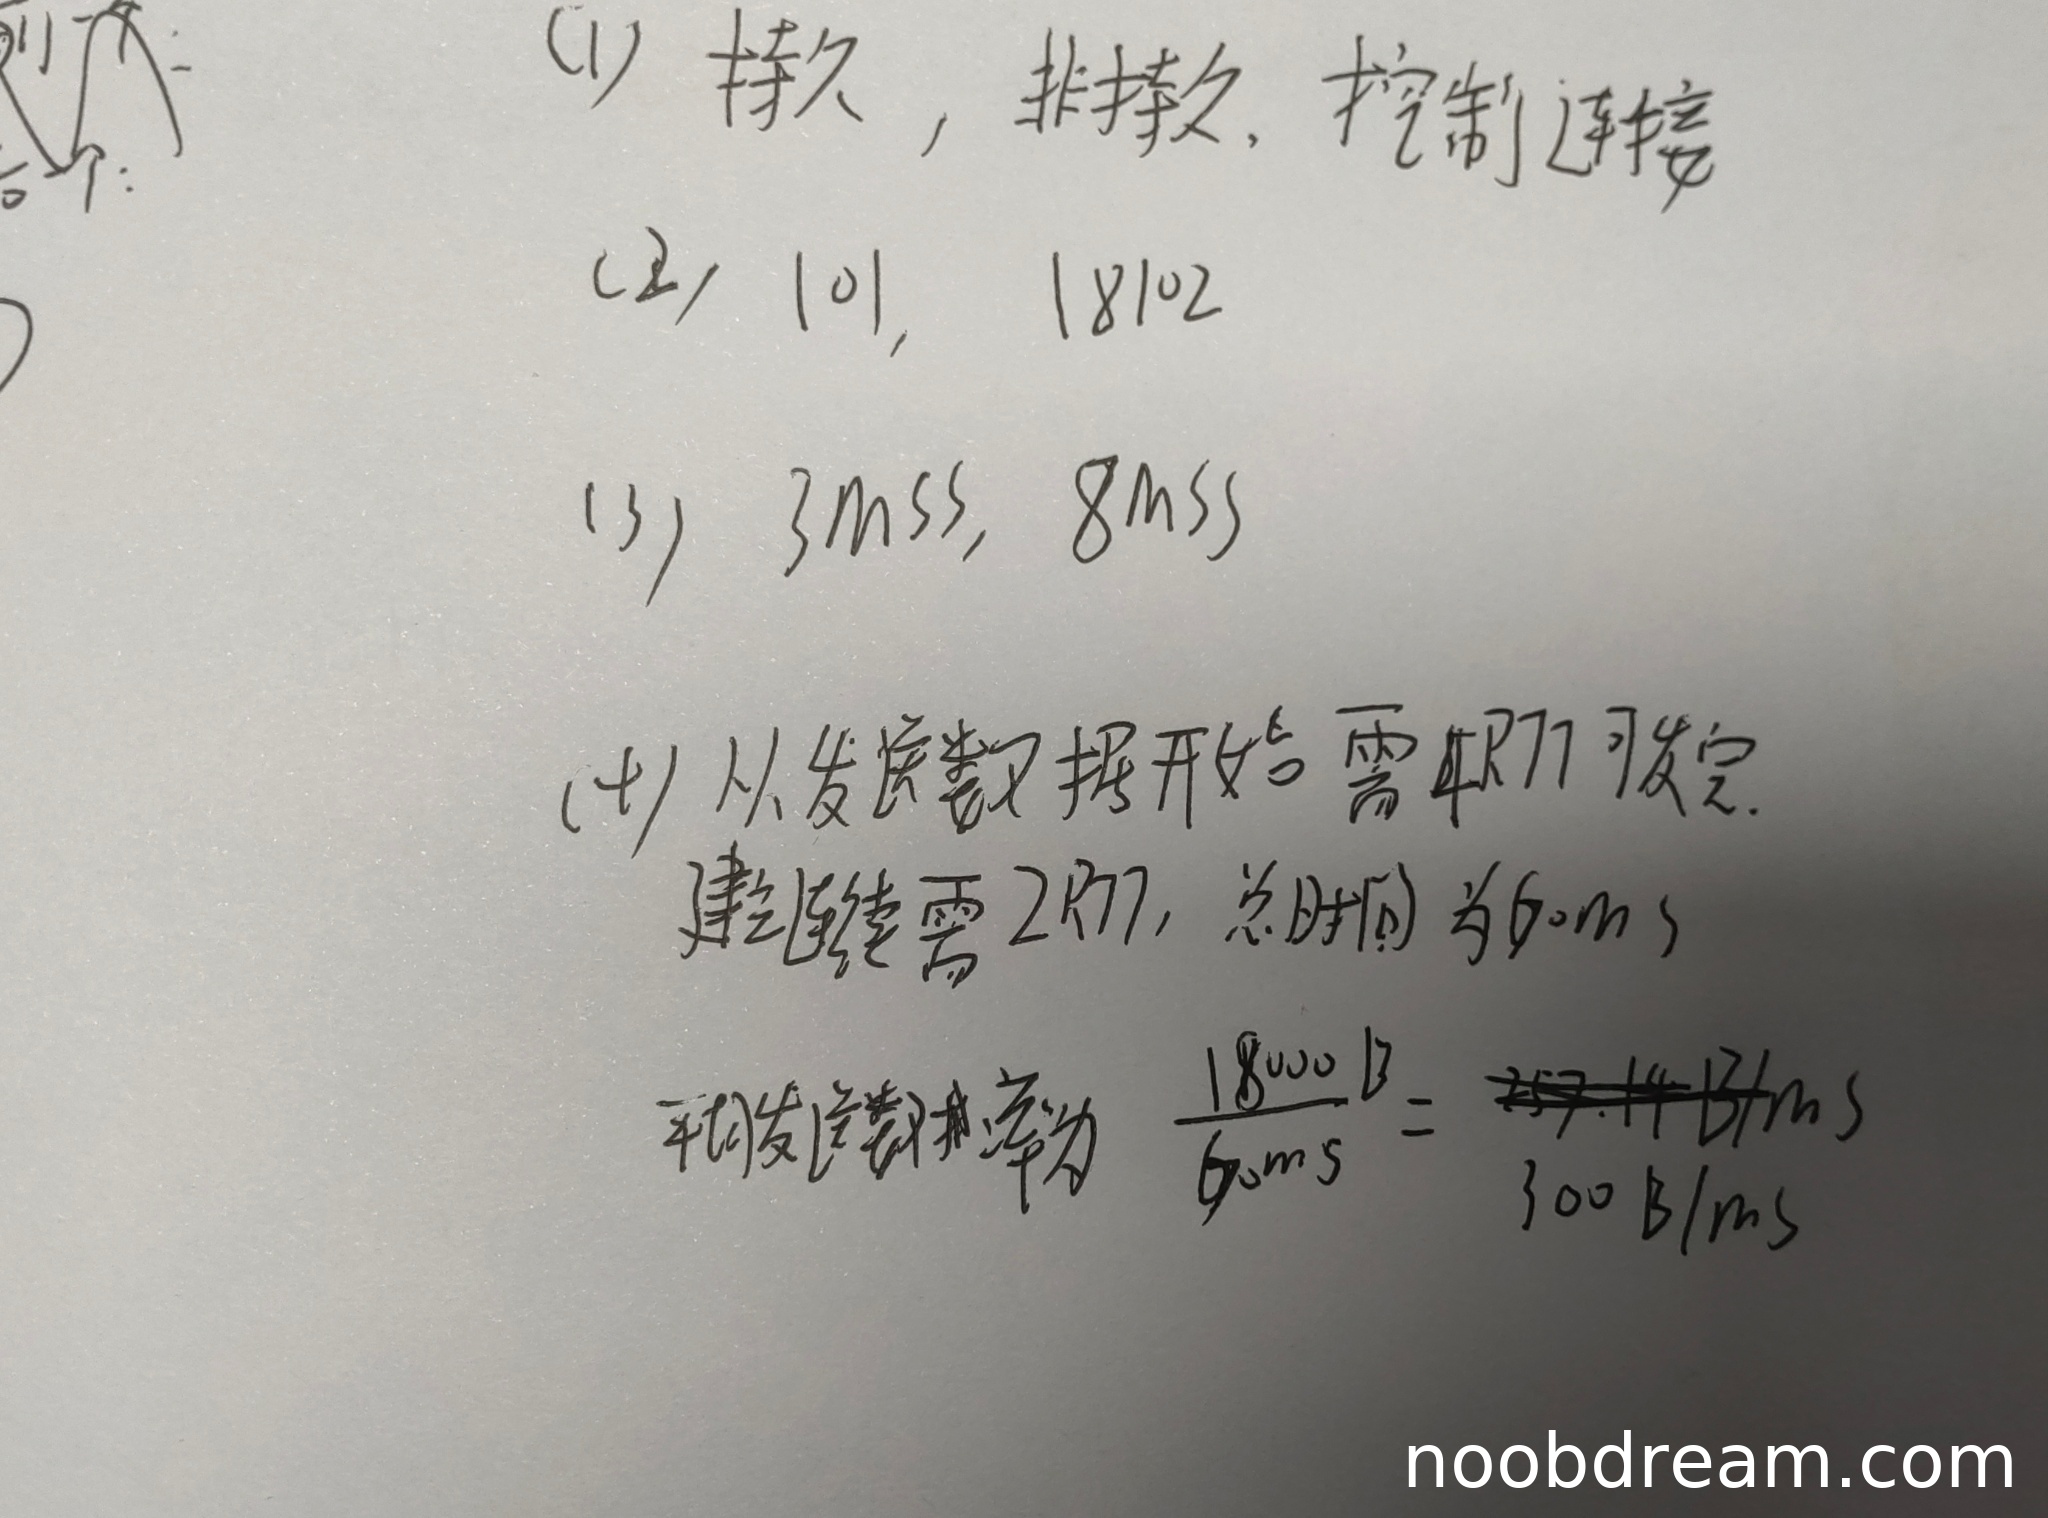 (1) 持久, 非持久, 控制连接
(2) 101, 18102
(3) 3mss, 8mss
(4) 从发送数据开始需4RTT可发完.
建立连续需2RTT, 总时间为60ms
平均发送数据率为 18000B/60ms = 257.14 B/ms
300 B/ms
noobdream.com